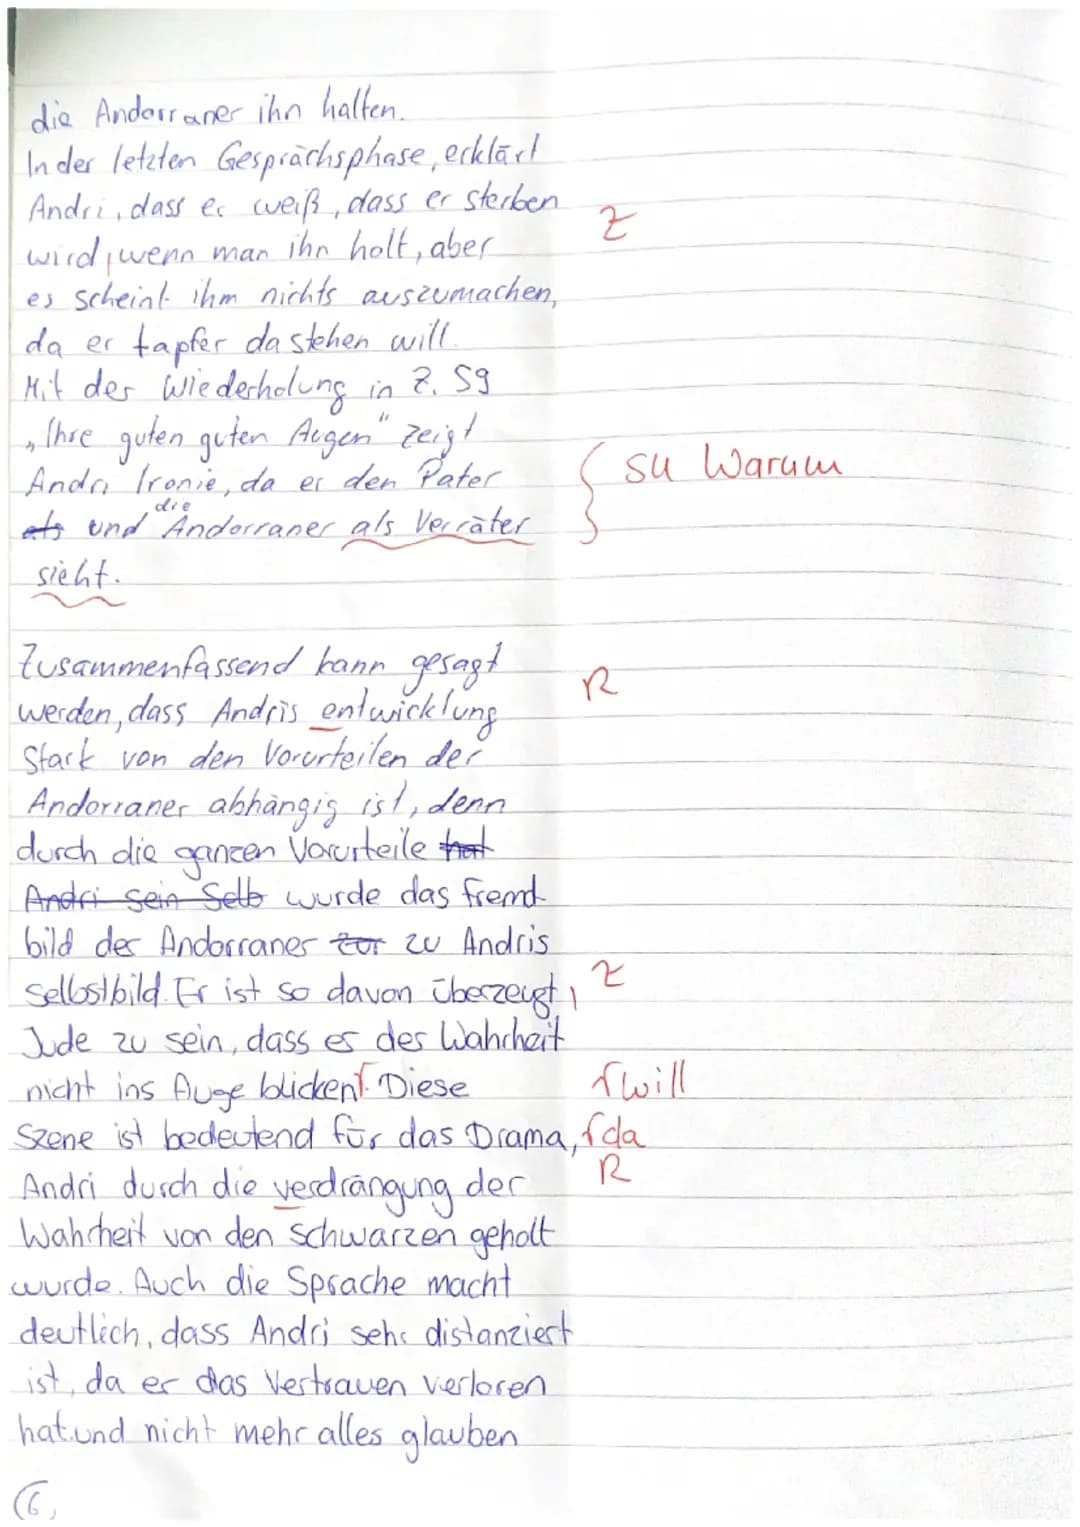 die Andorraner ihn halten.
In der letzten Gesprächsphase, erklärt
Andri, dass er weiß, dass er sterben
wird, wenn man ihn holt, aber
Z
es scheint ihm nichts auszumachen,
da er tapfer da stehen will.
Mit der Wiederholung in Z. 59
„Ihre guten guten Augen" zeigt
Andri Ironie, da er den Pater
su Warum
als und die Andorraner als Verräter
sieht.
Zusammenfassend kann gesagt
R
werden, dass Andris entwicklung
stark von den Vorurteilen der
Andorraner abhängig ist, denn
durch die ganzen Vorurteile hat
Andri sein Selb wurde das fremd
bild der Andorraner zur zu Andris
selbstbild. Er ist so davon überzeugt,
Z
Jude zu sein, dass es der Wahrheit
nicht ins Auge blicken Γ. Diese
Γ will
Szene ist bedeutend für das Drama, Γ da
Andri durch die verdrängung der
R
Wahrheit von den schwarzen geholt
wurde. Auch die Sprache macht
deutlich, dass Andri sehr distanziert
ist, da er das Vertrauen verloren
hat und nicht mehr alles glauben
6